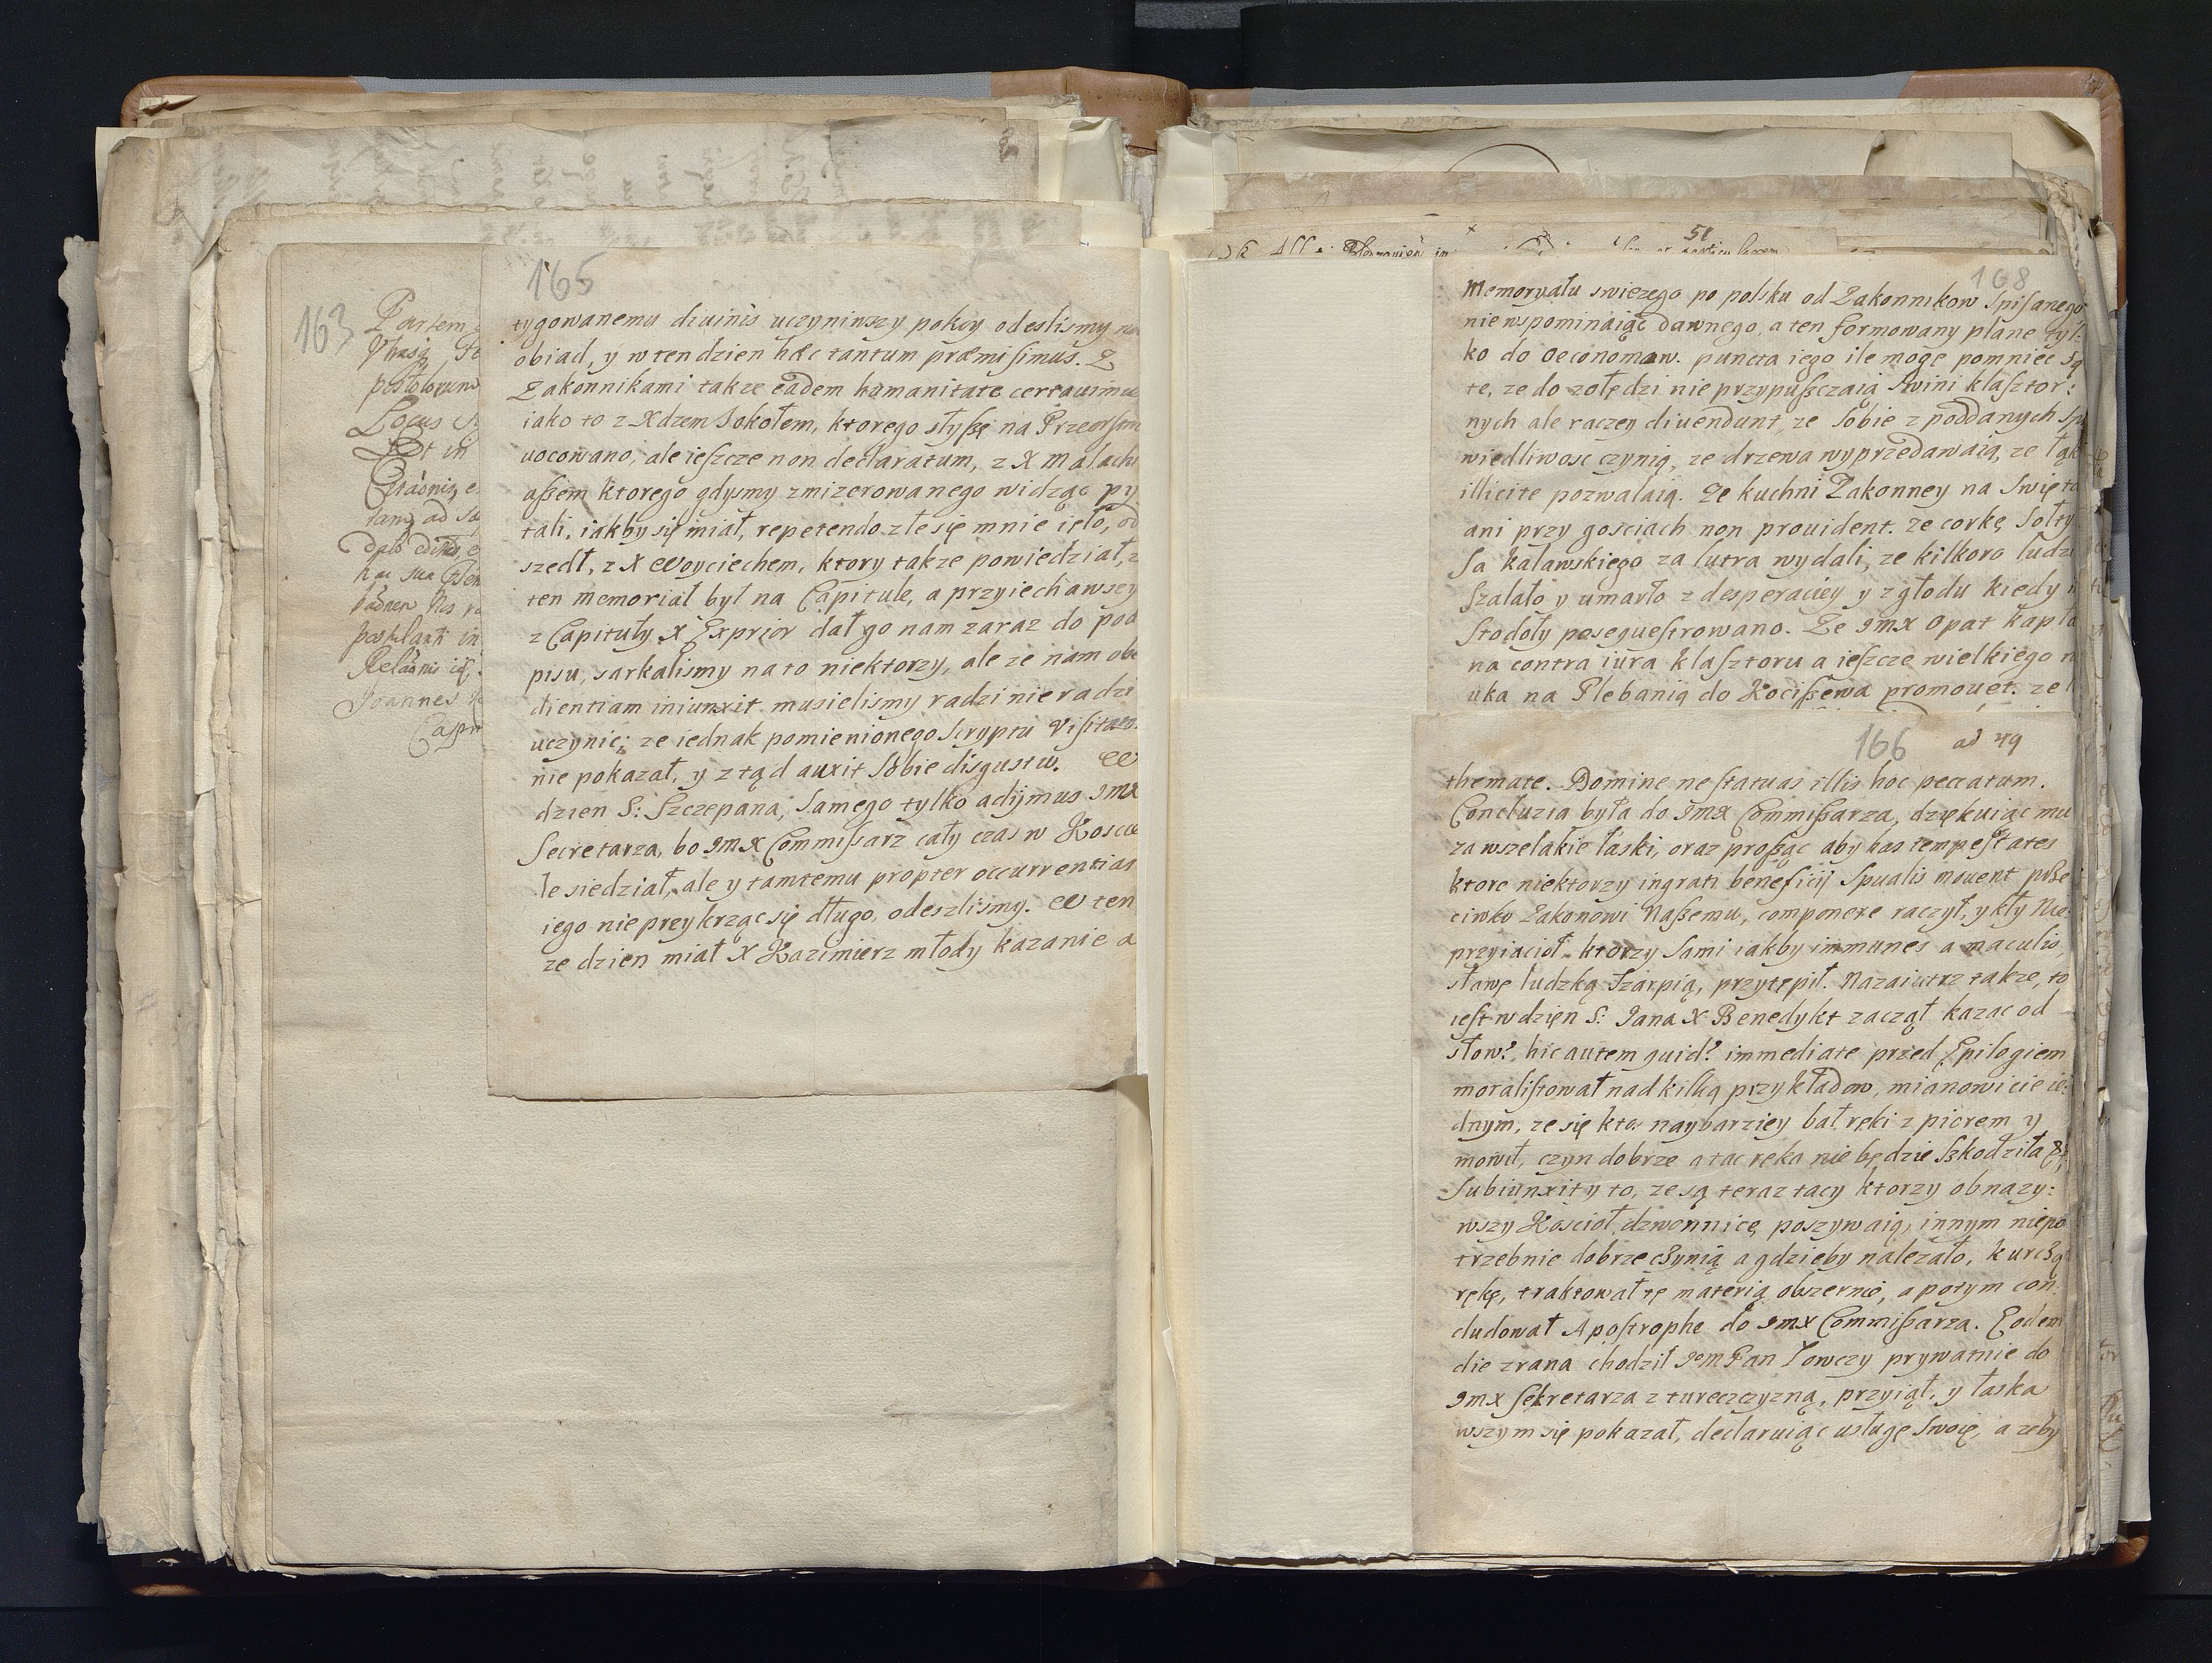 163
Partem
Locus
Joannes
165
tygowanemu diuinis uczyniwszy pokoy odeslismy na
obiad, y w ten dzien hæc tantum præmisimus. Z
Zakonnikami takze eadem humanitate certauimus
iako to z Xdzem Sokołem, ktorego słyszę na
uocowano, ale ieszcze non declaratum, z X Malachi
aszem ktorego gdysmy zmizerowanego widząc py
tali, iakby się miał, repetendo zle się mnie ięło, od
szedł, z X Woyciechem, ktory takze powiedział, z
ten memoriał był na Capitule, a przyiechawszy
z Capituły X Exprior dał go nam zaraz do pod
pisu, sarkalismy na to niektorzy, ale ze nam obe
dientiam iniunxit musielismy radzi nie radzi
uczynic; ze iednak pomienionego Scryptu
nie pokazał, y ztąd auxit sobie disgustu. W
dzien S: Szczepana, samego tylko adijmus JmX
Secretarza, bo JmX Commissarz cały czas w Koscie
le siedział, ale y tamtemu propter occurrentias
iego nie przykrząc się długo, odeszlismy. W ten
ze dzien miał X Kazimierz młody kazanie a
51
168
Memoryału swiezego po polsku od Zakonnikow spisanego
nie wspominaiąc dawnego, a ten formowany plane tyl:
ko do Oeconomow. puncta iego ile mogę pomniec są
te, ze do zołędzi nie przypuszczaią swini klasztor:
nych ale raczey diuendunt, ze sobie z poddanych sp
wiedliwosc czynią, ze drzewa wyprzedawaią, ze łąk
illicite pozwalaią. Ze kuchni Zakonney na Swięta
ani przy gosciach non prouident. ze corkę Sołty
sa Kaławskiego za lutra wydali, ze kilkoro ludzi
szalało y umarło z desperaciey y z głodu kiedy
stodoły posequestrowano. Ze JmX Opat kapła
na contra iura klasztoru a ieszcze wielkiego n
uka na Plebanią do Kociszewa promouet. ze
166 ad 49
themate. Domine ne statuas illis hoc peccatum.
Concluzia była do JmX Commissarza, dziękuiąc mu
za wszelakie łaski, oraz prosząc aby has tempestates
ktore niektorzy ingrati beneficij Spualis mouent prze
ciwko Zakonowi Naszemu, componere raczył, y kły Nie
przyiacioł, ktorzy sami iakby immunes a maculis,
sławę ludzką szarpią, przytępił. Nazaiutrz takze, to
iest w dzien S: Jana X Benedykt zaczął kazac od
słow: hic autem quid? immediate przed Epilogiem
moralistował nad kilką przykładow, mianowicie ie:
dnym, ze się ktos naybarziey bał ręki z piorem y
mowił, czyn dobrze a tac ręka nie będzie szkodziła &,
subiunxit y to, ze są teraz tacy ktorzy obnazy:
wszy Koscioł, dzwonnicę poszywaią, innym niepo
trzebnie dobrze czynią a gdzieby nalezało, kurczą
rękę, traktował tę materią obszernie, a potym con
cludował Apostrophe do JmX Commissarza. Eodem
die zrana chodził JeMPan Łowczy prywatnie do
JmX Sekretarza z tureczczyzną, przyiął, y łaska
wszym się pokazał, declaruiąc usługę swoię, a zeby